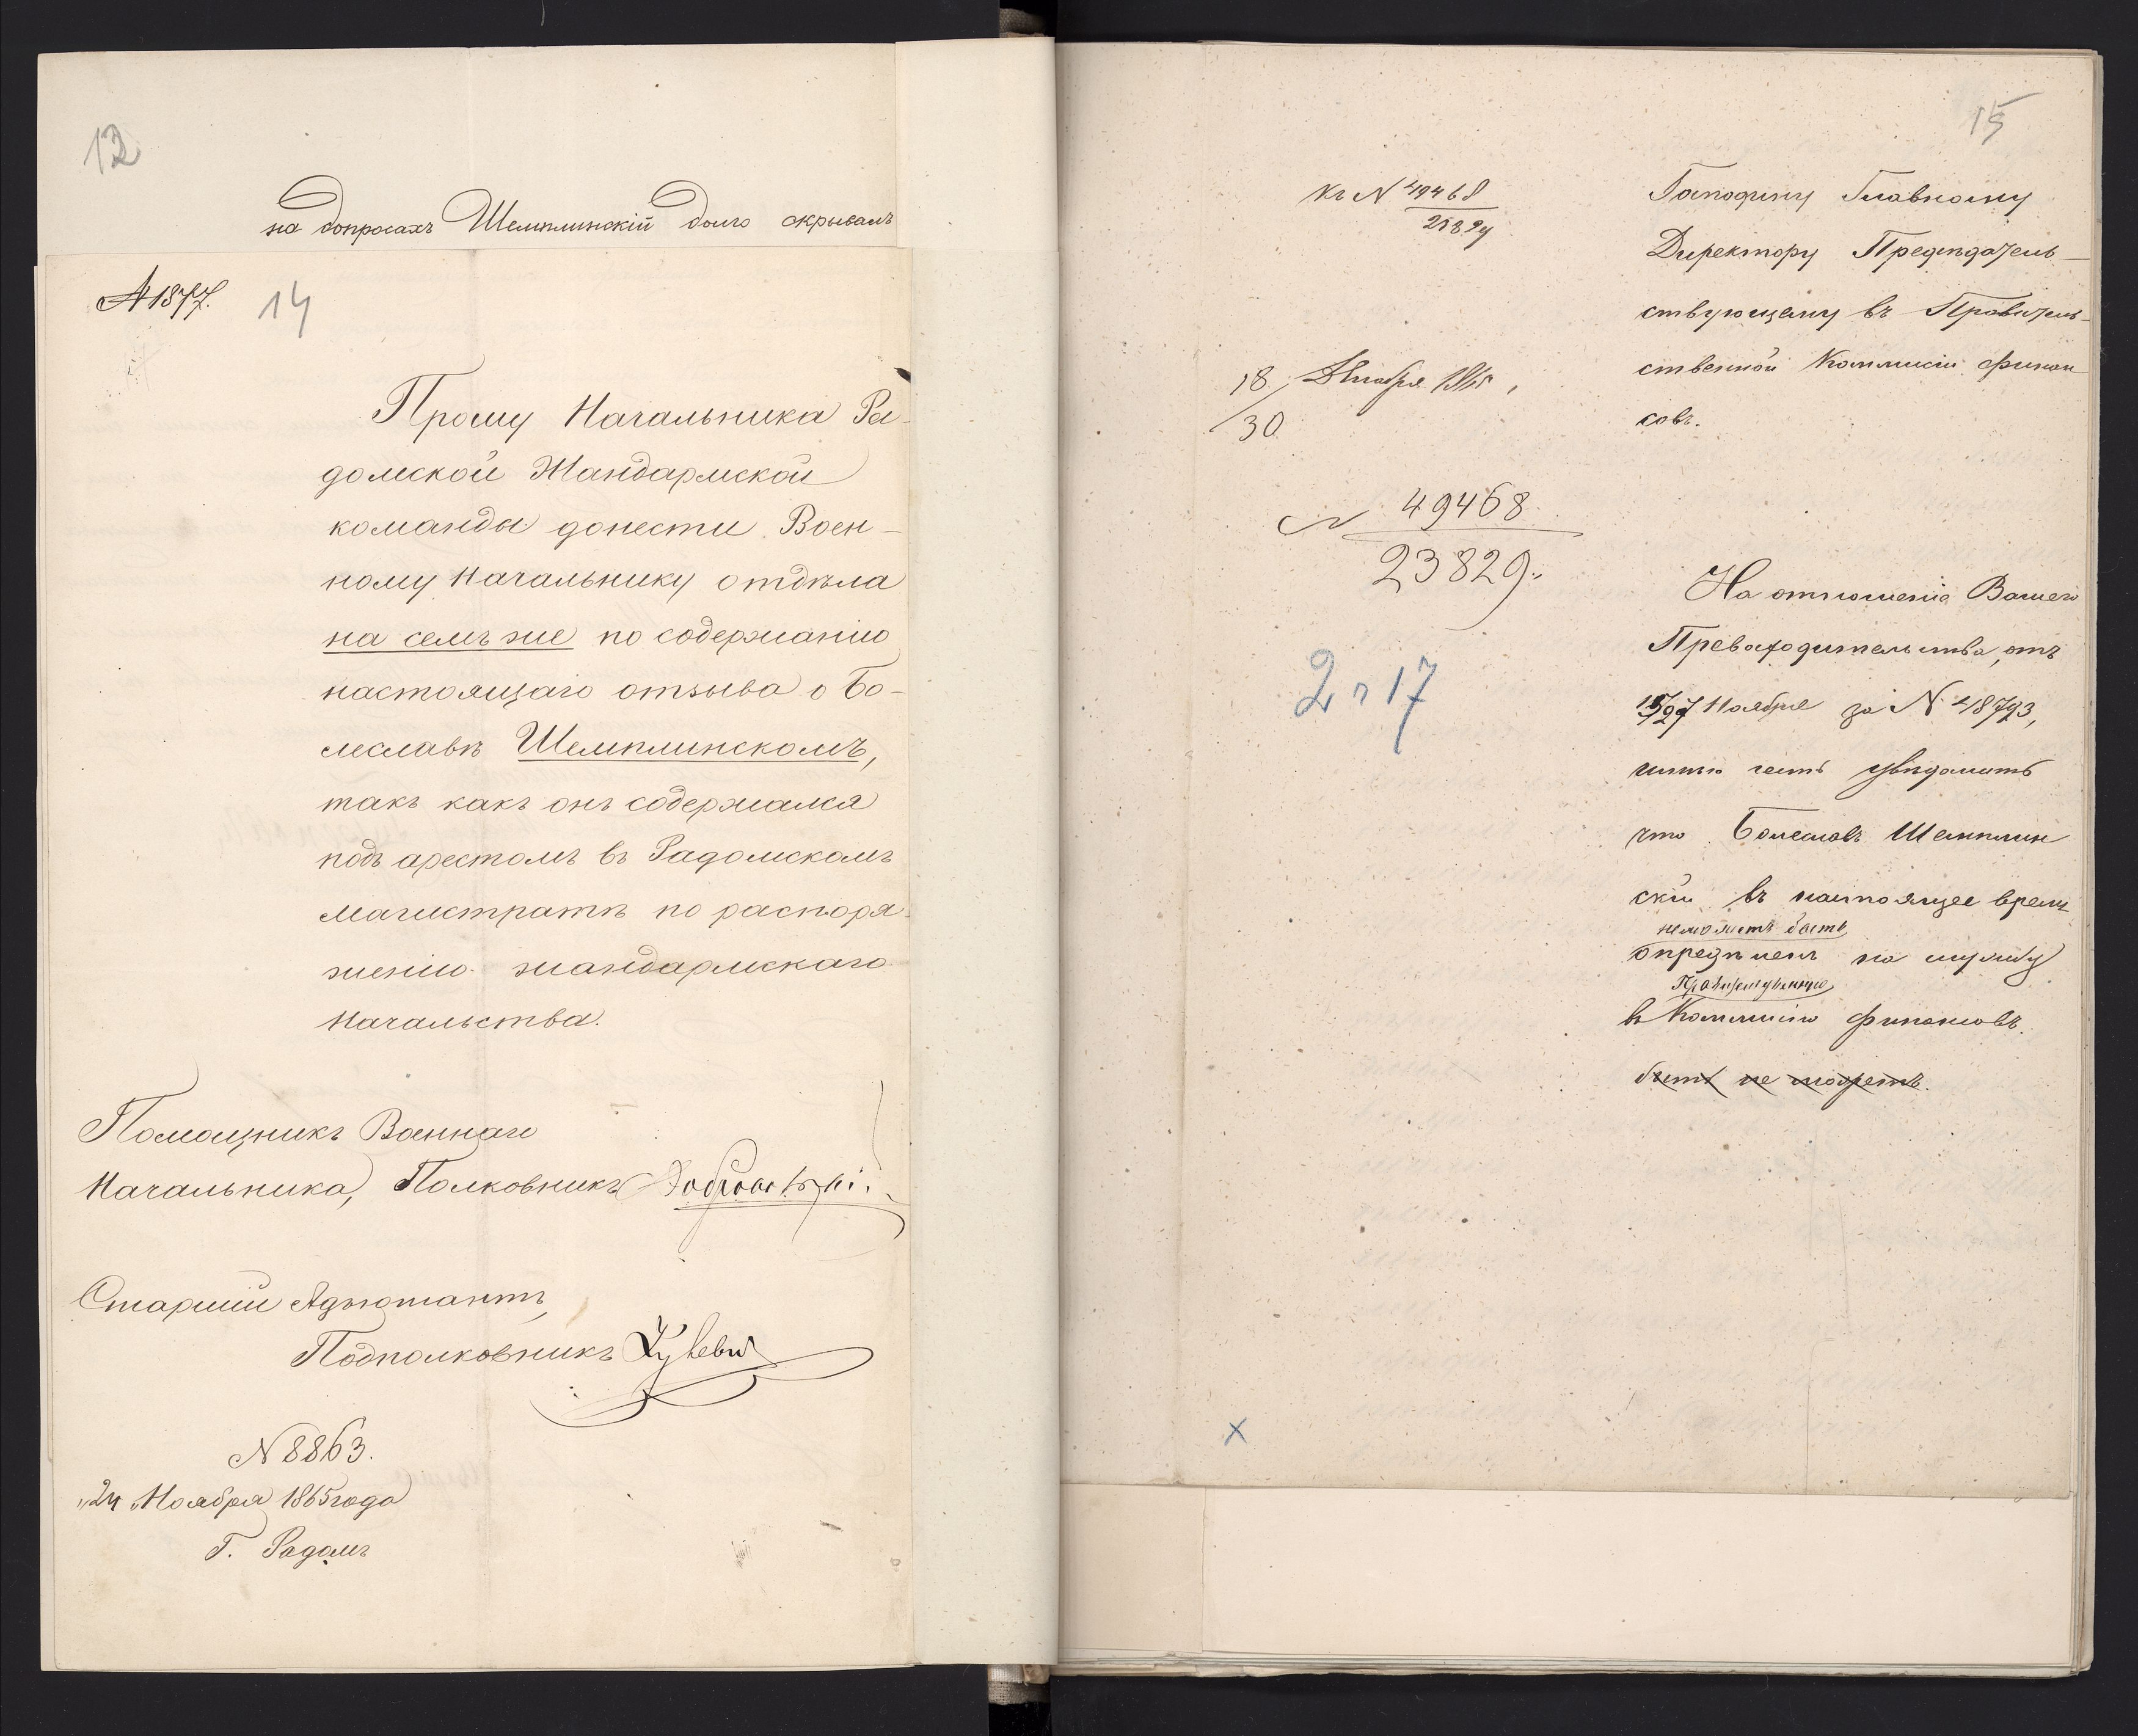 12
на допросахъ Шемплинскій долго скрывалъ
№ 1877.
14
Прошу Начальника Ра-
домской Жандармской
команды донести Воен-
ному Начальнику отдѣла
на семъ же по содержанію
настоящаго отзыва о Бо-
леславѣ Шемплинскомъ,
такъ какъ онъ содержался
подъ арестомъ въ Радомскомъ
магистратѣ по распоря-
женію жандармскаго
Начальства.
Помощникъ Военнаго
Начальника, Полковникъ
Старшій Адъютантъ,
Подполковникъ
№ 8863.
"24" Ноября 1865 года
Г. Радомъ
15
Къ № 49468
18/30 Декабря 1865
№ 49468
23829.
2 п 17
Господину Главному
Директору Предсѣдатель-
ствующему въ Правитель-
ственной Коммисіи Финан-
совъ.
На отношеніе Вашего
Превосходительства, отъ
15/27 Ноября за № 48793,
имѣю честь увѣдомить
что Болеславъ Шемплин
скій въ настоящее время
неможетъ быть
опредѣленъ на службу
Правительственную
въ Коммисію Финансовъ.
быть не можетъ.
x